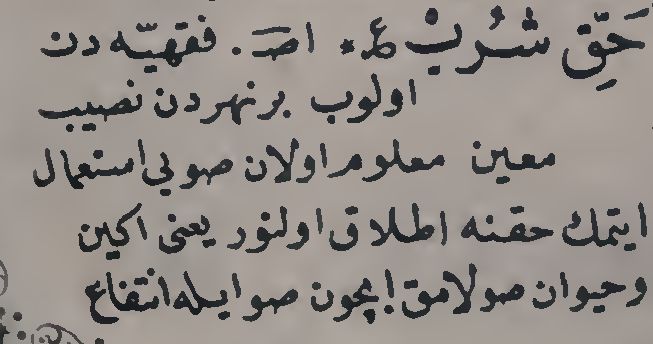 حَقِّ شُرُبْ ع‍ اصـ . فقهيّه دن
اولوب برنهردن نصيب
معين معلوم اولان صويى استعمال
ايتمك حقنه اطلاق اولنور يعنى اكين
وحيوان صولامق ايچون صو ايله انتفاع